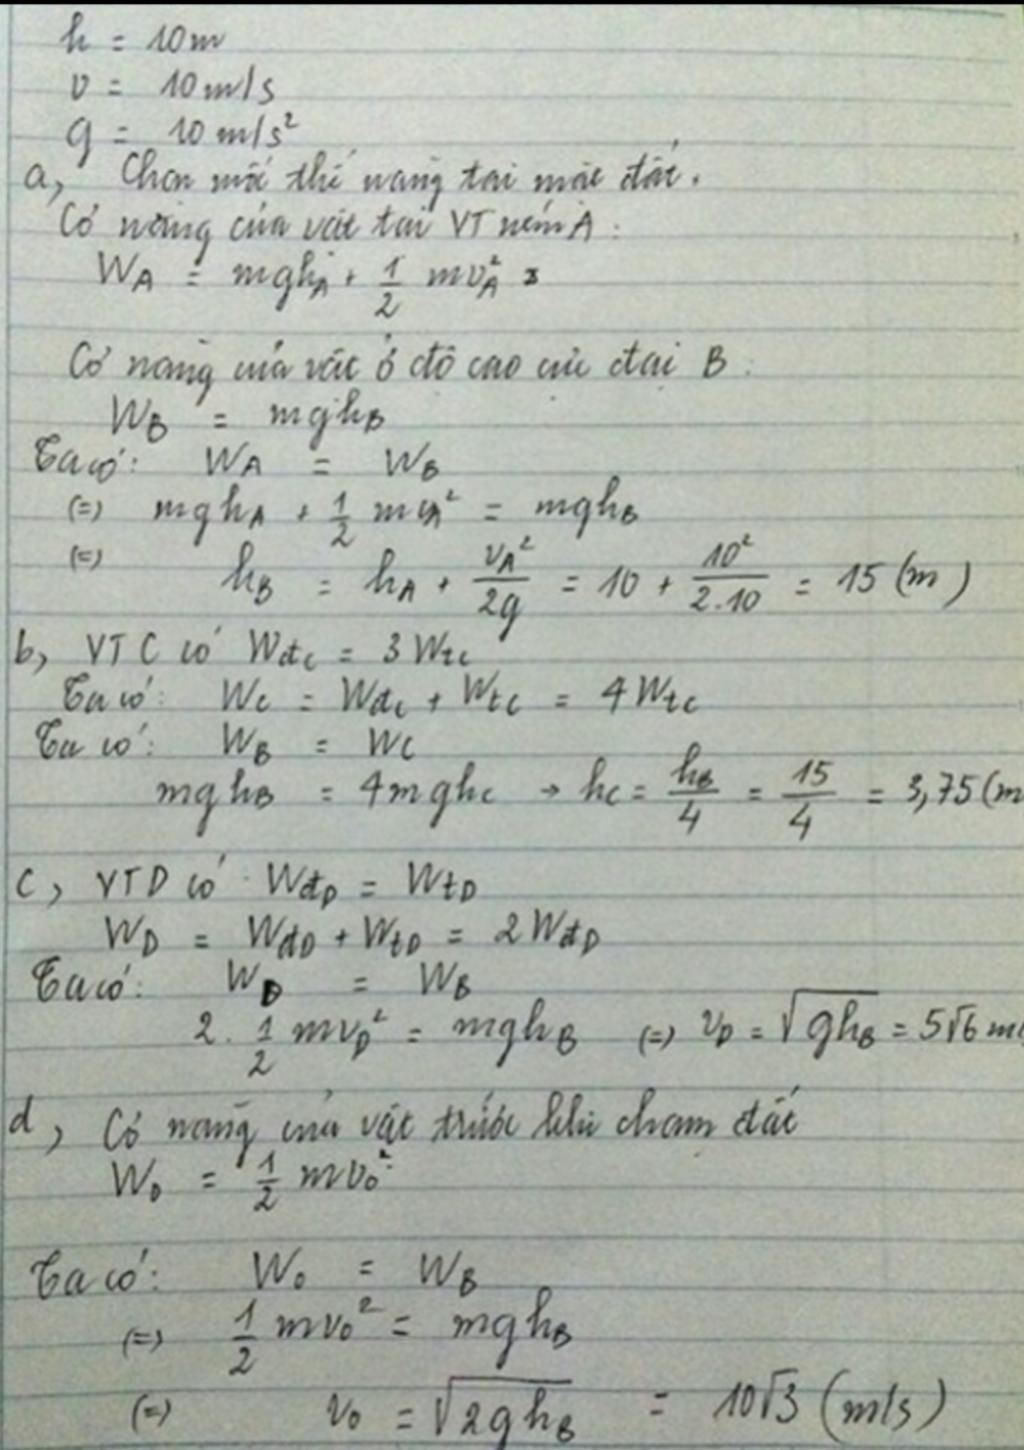 h = 10m
v = 10 m/s
g = 10 m/s²
a, Chọn mốc thế năng tại mặt đất.
Cơ năng của vật tại VT ném A :
W_A = mgh_A + 1/2 mv_A²
Cơ năng của vật ở độ cao cực đại B :
W_B = mgh_B
Ta có: W_A = W_B
(=) mgh_A + 1/2 mv_A² = mgh_B
(=) h_B = h_A + v_A²/2g = 10 + 10²/2.10 = 15 (m)
b, VT C có Wđ_C = 3 Wt_C
Ta có: W_C = Wđ_C + Wt_C = 4 Wt_C
Ta có: W_B = W_C
mgh_B = 4mgh_C → h_C = h_B/4 = 15/4 = 3,75 (m
c, VT D có Wđ_D = Wt_D
W_D = Wđ_D + Wt_D = 2 Wđ_D
Ta có: W_D = W_B
2. 1/2 mv_D² = mgh_B (=) v_D = √gh_B = 5√6 m/
d, Cơ năng của vật trước khi chạm đất
W_0 = 1/2 mv_0²
Ta có: W_0 = W_B
(=) 1/2 mv_0² = mgh_B
(=) v_0 = √2gh_B = 10√3 (m/s)